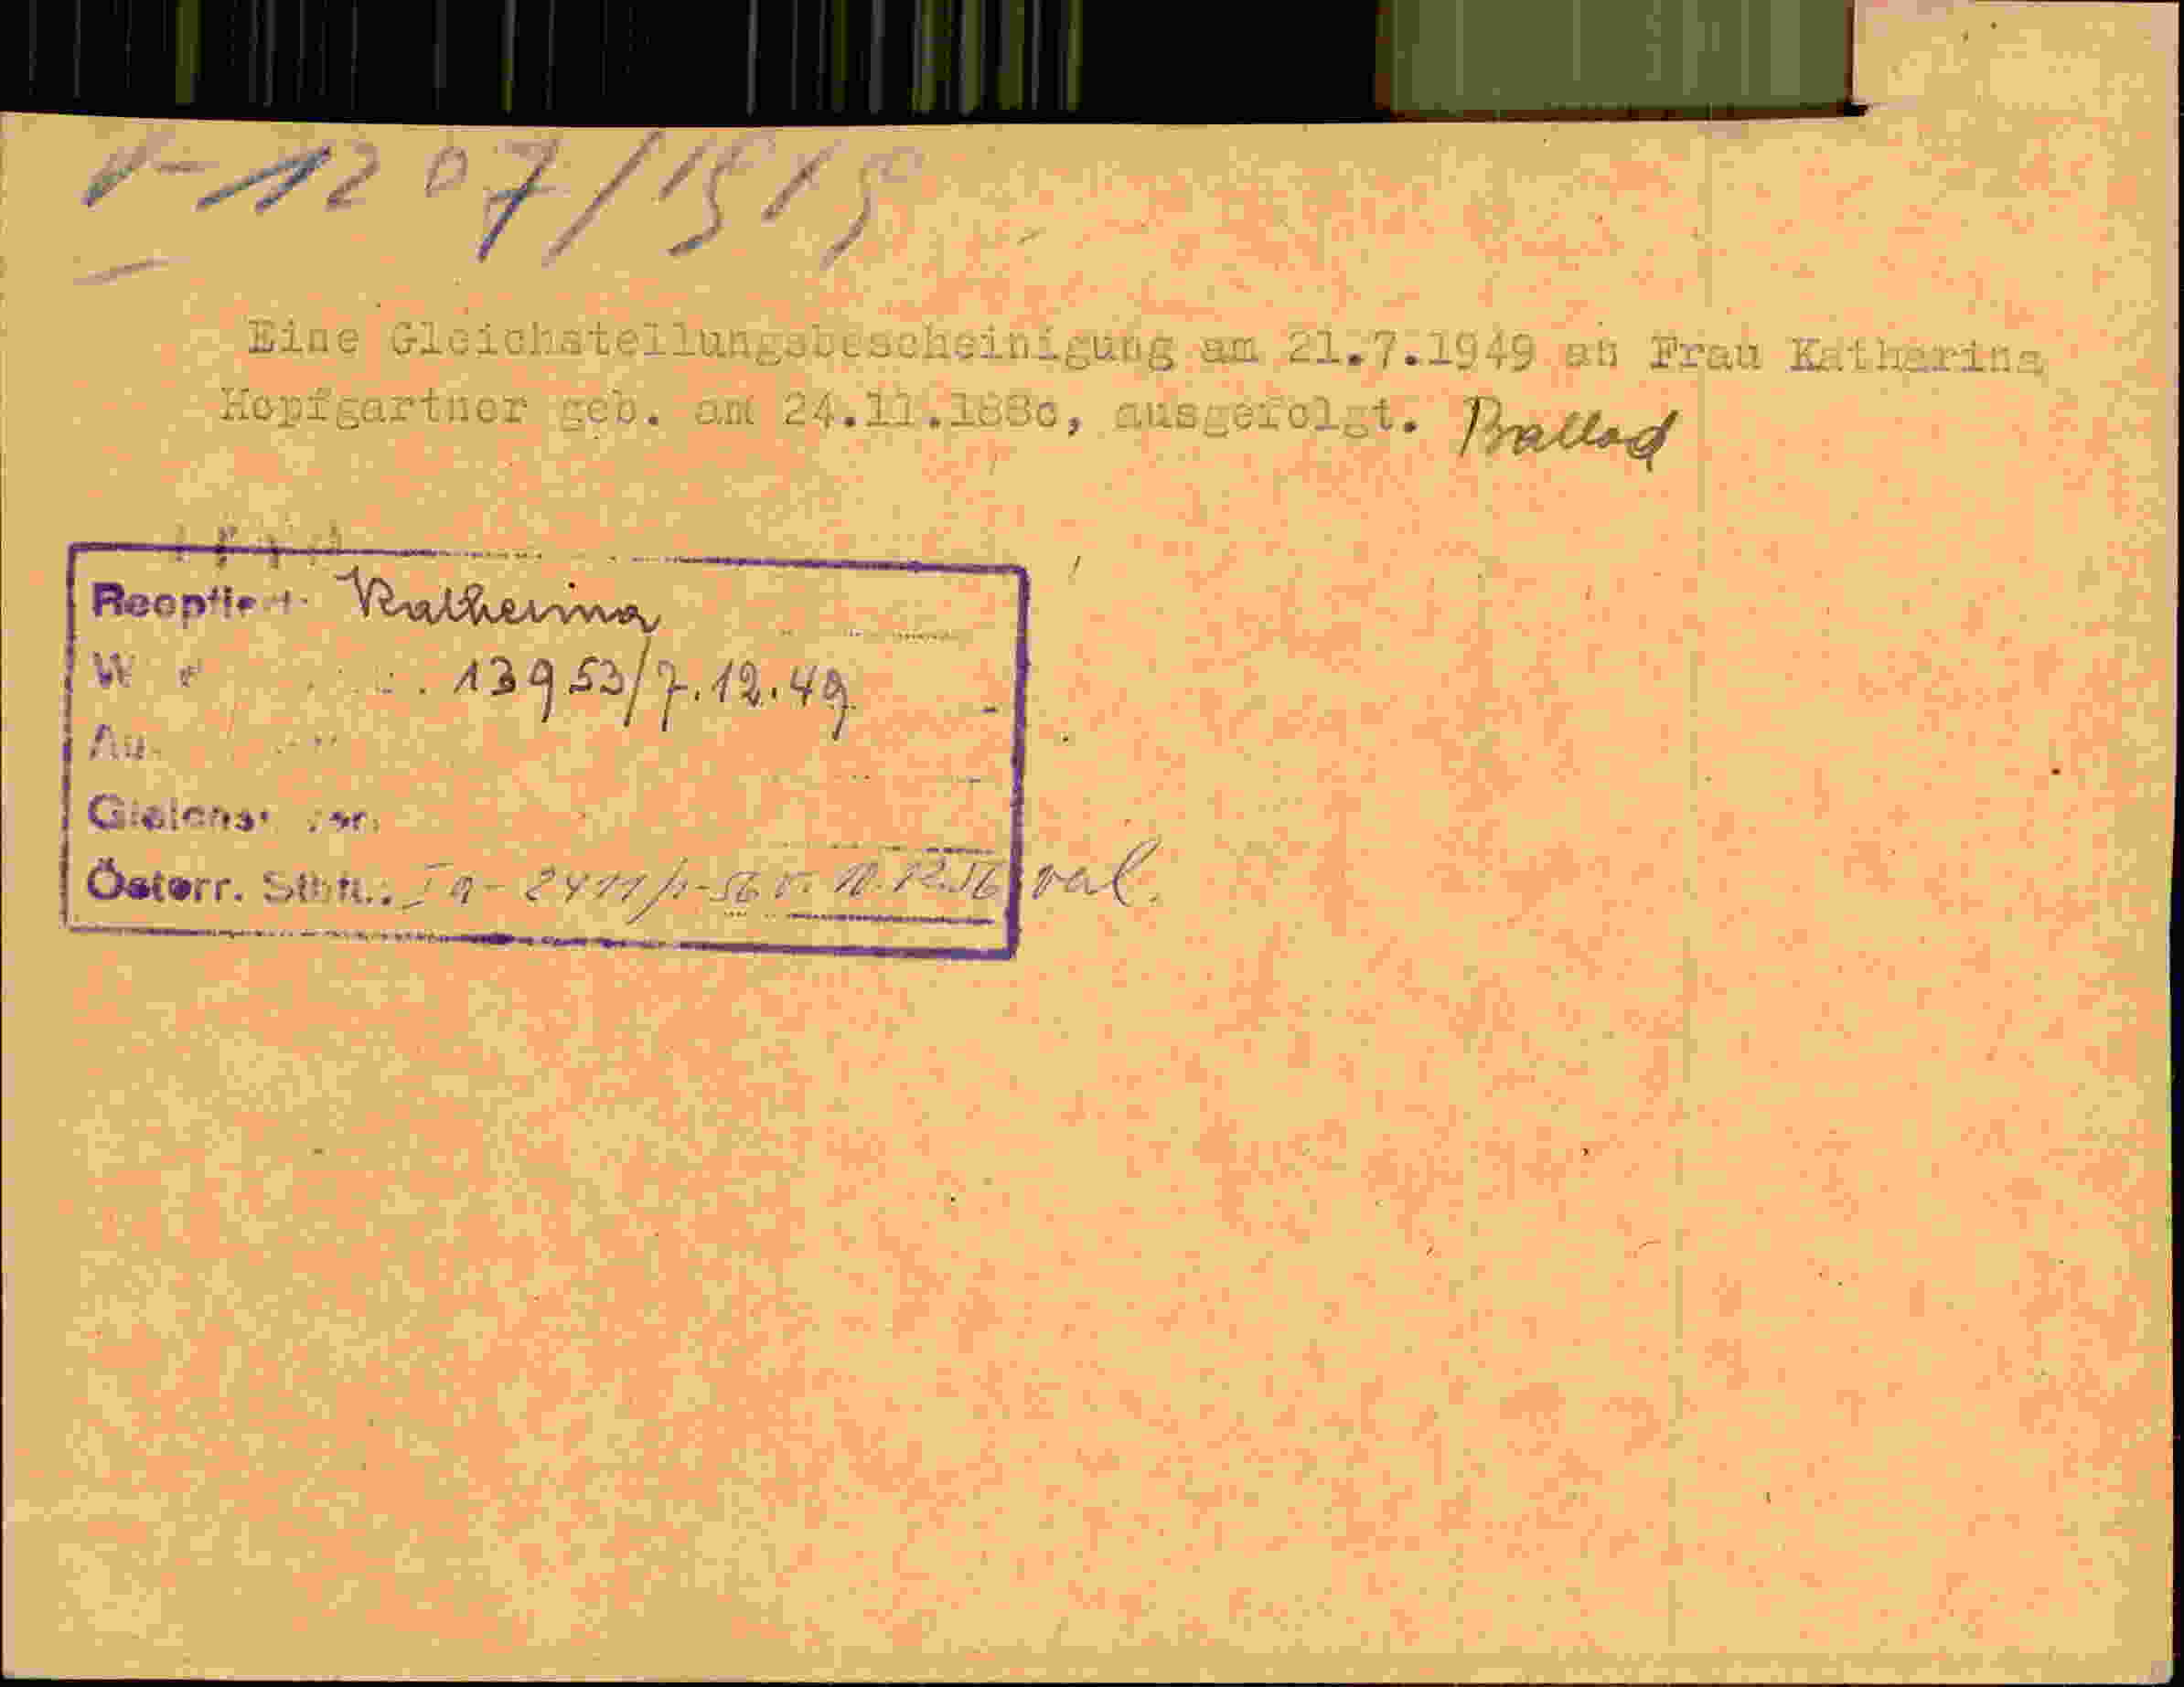 V-1207/1919
Eine Gleichstellungsbescheinigung am 21.7.1949 an Frau Katharina
Hopfgartner geb. am 24.11.1880, ausgefolgt. Ballad
Reoptiert: Katherina
13953/7.12.49
Österr. Stbft.: I a- 2411/1-56 v. 10.12.56 val.